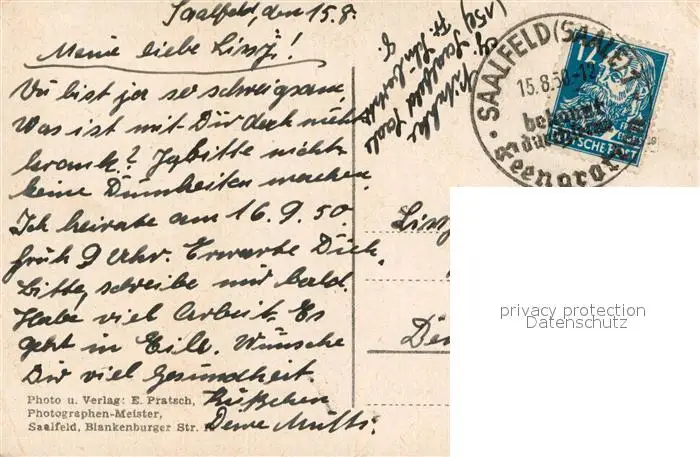 Saalfeld, den 15.8.
Meine liebe Lissj!
Du bist ja so schweigsam,
Was ist mit Dir doch nicht
krank? Ja bitte nicht
keine Dummheiten machen.
Ich heirate am 16.9.50.
früh 9 Uhr. Erwarte Dich.
Bitte, schreibe mir bald.
Habe viel Arbeit. Es
geht in Eile. Wünsche
Dir viel Gesundheit.
Küßchen
Deine Mutti.
Photo u. Verlag: E. Pratsch,
Photographen-Meister,
Saalfeld, Blankenburger Str.
(15a) Saalfeld Saale
SAALFELD (SAALE)
15.8.50-12
bekannt
durch
Feengrotten
12
DEUTSCHE POST
Lissj
privacy protection
Datenschutz